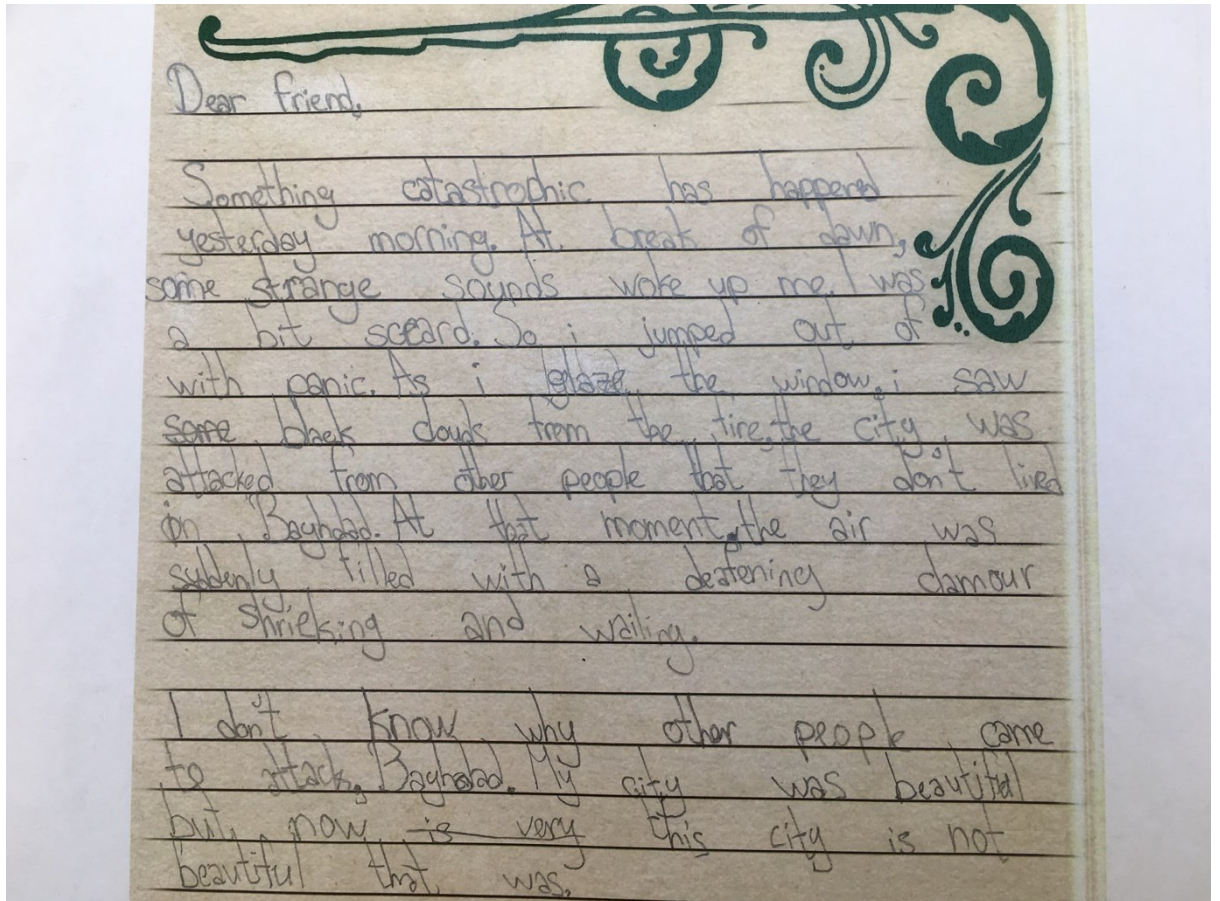 Dear friend,
Something catastrophic has happened
yesterday morning. At break of dawn,
some strange sounds woke up me. I was
a bit sceard. So i jumped out of
with panic. As i glaze the window, i saw
some black clouds from the fire, the city was
attacked from other people that they don't lived
in Baghdad. At that moment, the air was
suddenly filled with a deafening clamour
of shrieking and wailing.
I don't know why other people came
to attack Baghdad. My city was beautiful
but now is very this city is not
beautiful that was.